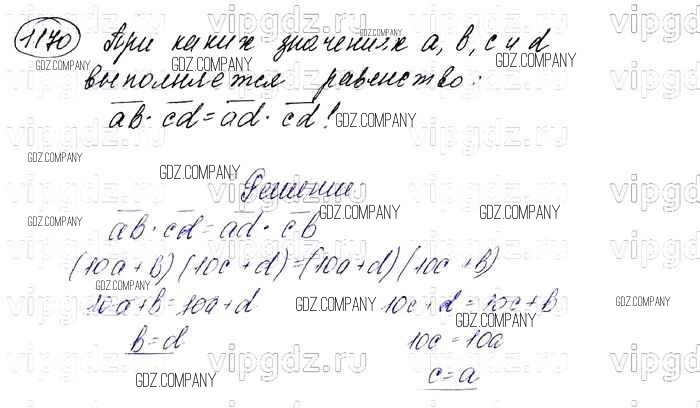 1170 При каких значениях a, b, c и d
выполняется равенство:
a̅b̅ · c̅d̅ = a̅d̅ · c̅d̅!
Решение
a̅b̅ · c̅d̅ = a̅d̅ · c̅b̅
(10a + b) (10c + d) = (10a + d) (10c + b)
10a + b = 10a + d 10c + d = 10c + b
b = d 10c = 10a
c = a